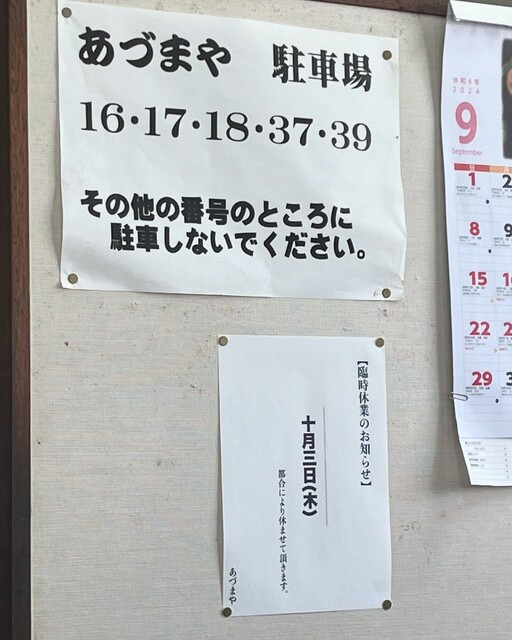 あづまや 駐車場
16・17・18・37・39
その他の番号のところに
駐車しないでください。
【臨時休業のお知らせ】
十月三日(木)
都合により休ませて頂きます。
あづまや
令和6年
2024
9
September
日
1
8
15
22
29